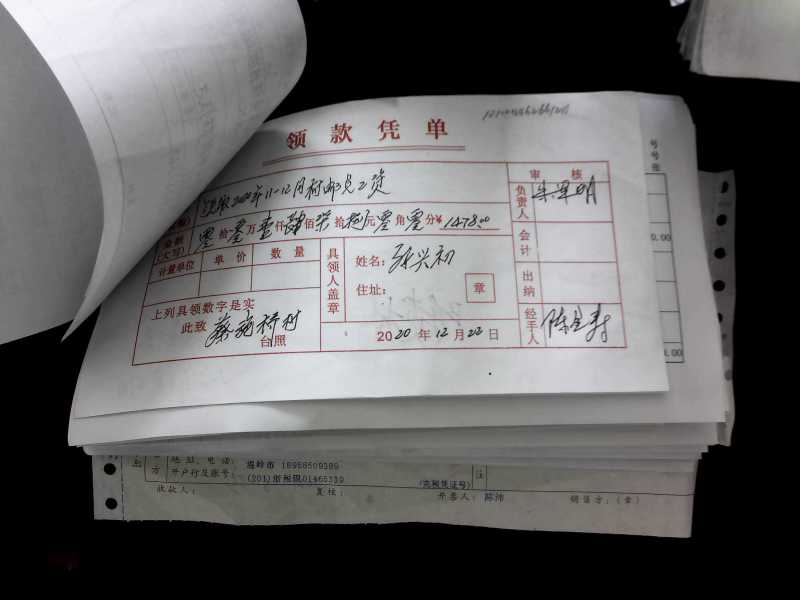 领款凭单
领取2020年11-12月村邮员工资
审核
金额
(大写)
零拾零万壹仟肆佰柒拾捌元零角零分¥1478.00
负责人
朱军明
计量单位 单价 数量
具领人盖章
姓名:张兴初
住址:
章
会计
出纳
上列具领数字是实
此致
台照
2020年12月22日
经手人
号
号
张
0.00
0.00
方
地址、电话:
温岭市 18958509389
开户行及账号:
收款人:
复核:
开票人:陈沛
销售方:(章)
注